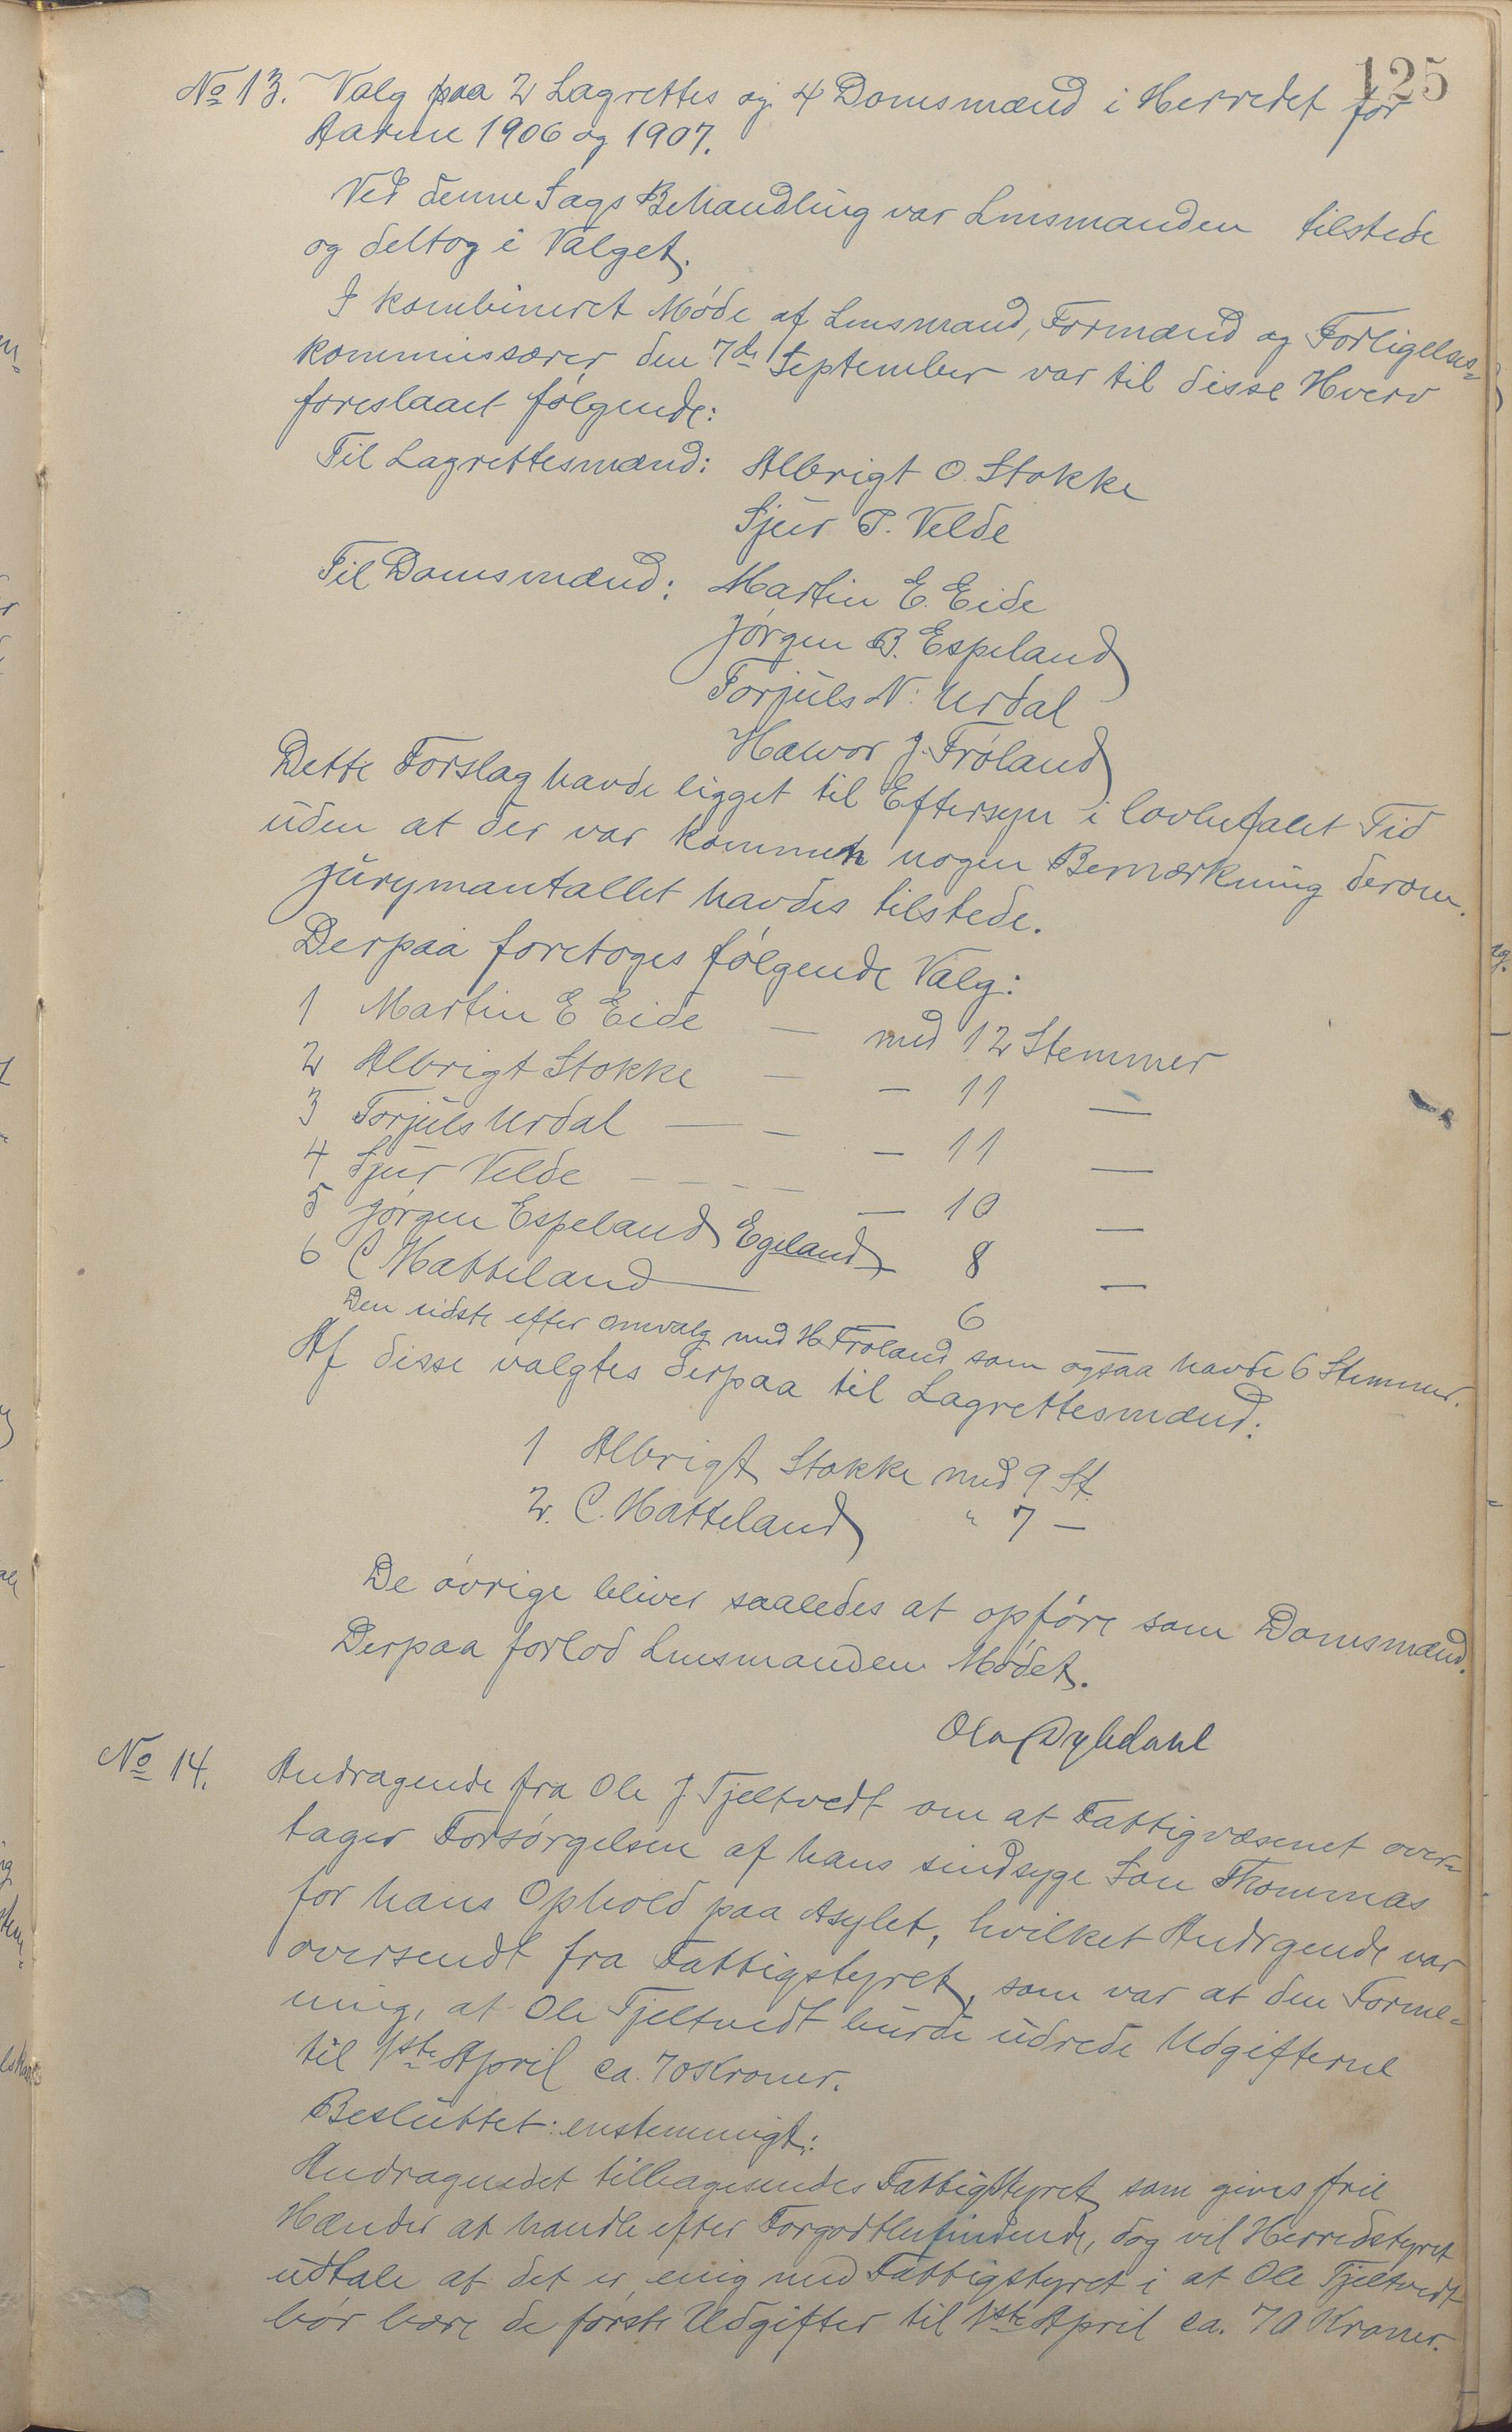 125
No 13. Valg paa 2 Lagrettes og 4 Domsmænd i Herredet for
Aarene 1906 og 1907.
Ved denne Sags Behandling var Lensmanden tilstede
og deltog i Valget.
I kombineret Møde af Lensmand, Formænd og Forligelses-
kommissærer den 7de September var til disse Hverv
foreslaaet følgende:
Til Lagrettesmænd: Albrigt O. Stokke
Sjur P. Velde
Til Domsmænd: Martin E. Eide
Jørgen B. Espeland
Torjuls N. Urdal
Hawor J. Frøland
Dette Forslag havde ligget til Eftersyn i lovbefalet Tid
uden at der var kommen nogen Bemærkning derom.
Jurymantallet havdes tilstede.
Derpaa foretoges følgende Valg:
1 Martin E Eide — med 12 Stemmer
2 Albrigt Stokke — — 11 —
3 Torjuls Urdal — — — 11 —
4 Sjur Velde — — — — — 10 —
5 Jørgen Espeland Egeland — 8 —
6 C Hatteland — 6
Den sidste efter omvalg med H. Frøland som ogsaa havde 6 Stemmer.
Af disse valgtes derpaa til Lagrettesmænd:
1 Albrigt Stokke med 9 St.
2. C. Hatteland " 7 —
De øvrige bliver saaledes at opføre som Domsmænd.
Derpaa forlod Lensmanden Mødet.
Ola Dybdahl
No 14. Andragende fra Ole J Tjeltvedt om at Fattigvæsenet over-
tager Forsørgelsen af hans sindsyge Søn Thommas
for hans Ophold paa Asylet, hvilket Andrgende var
oversendt fra Fattigstyret, som var at den Forme-
ning, at Ole Tjeltvedt burde udrede Udgifterne
til 1ste April ca. 70 Kroner.
Besluttet: enstemmigt:
Andragendet tilbagesendes Fattigstyret som gives frie
Hænder at handle efter Forgodtbefindende, dog vil Herredstyret
udtale at det er enig med Fattigstyret i at Ole Tjeltvedt
bør bære de første Udgifter til 1ste April ca. 70 Kroner.